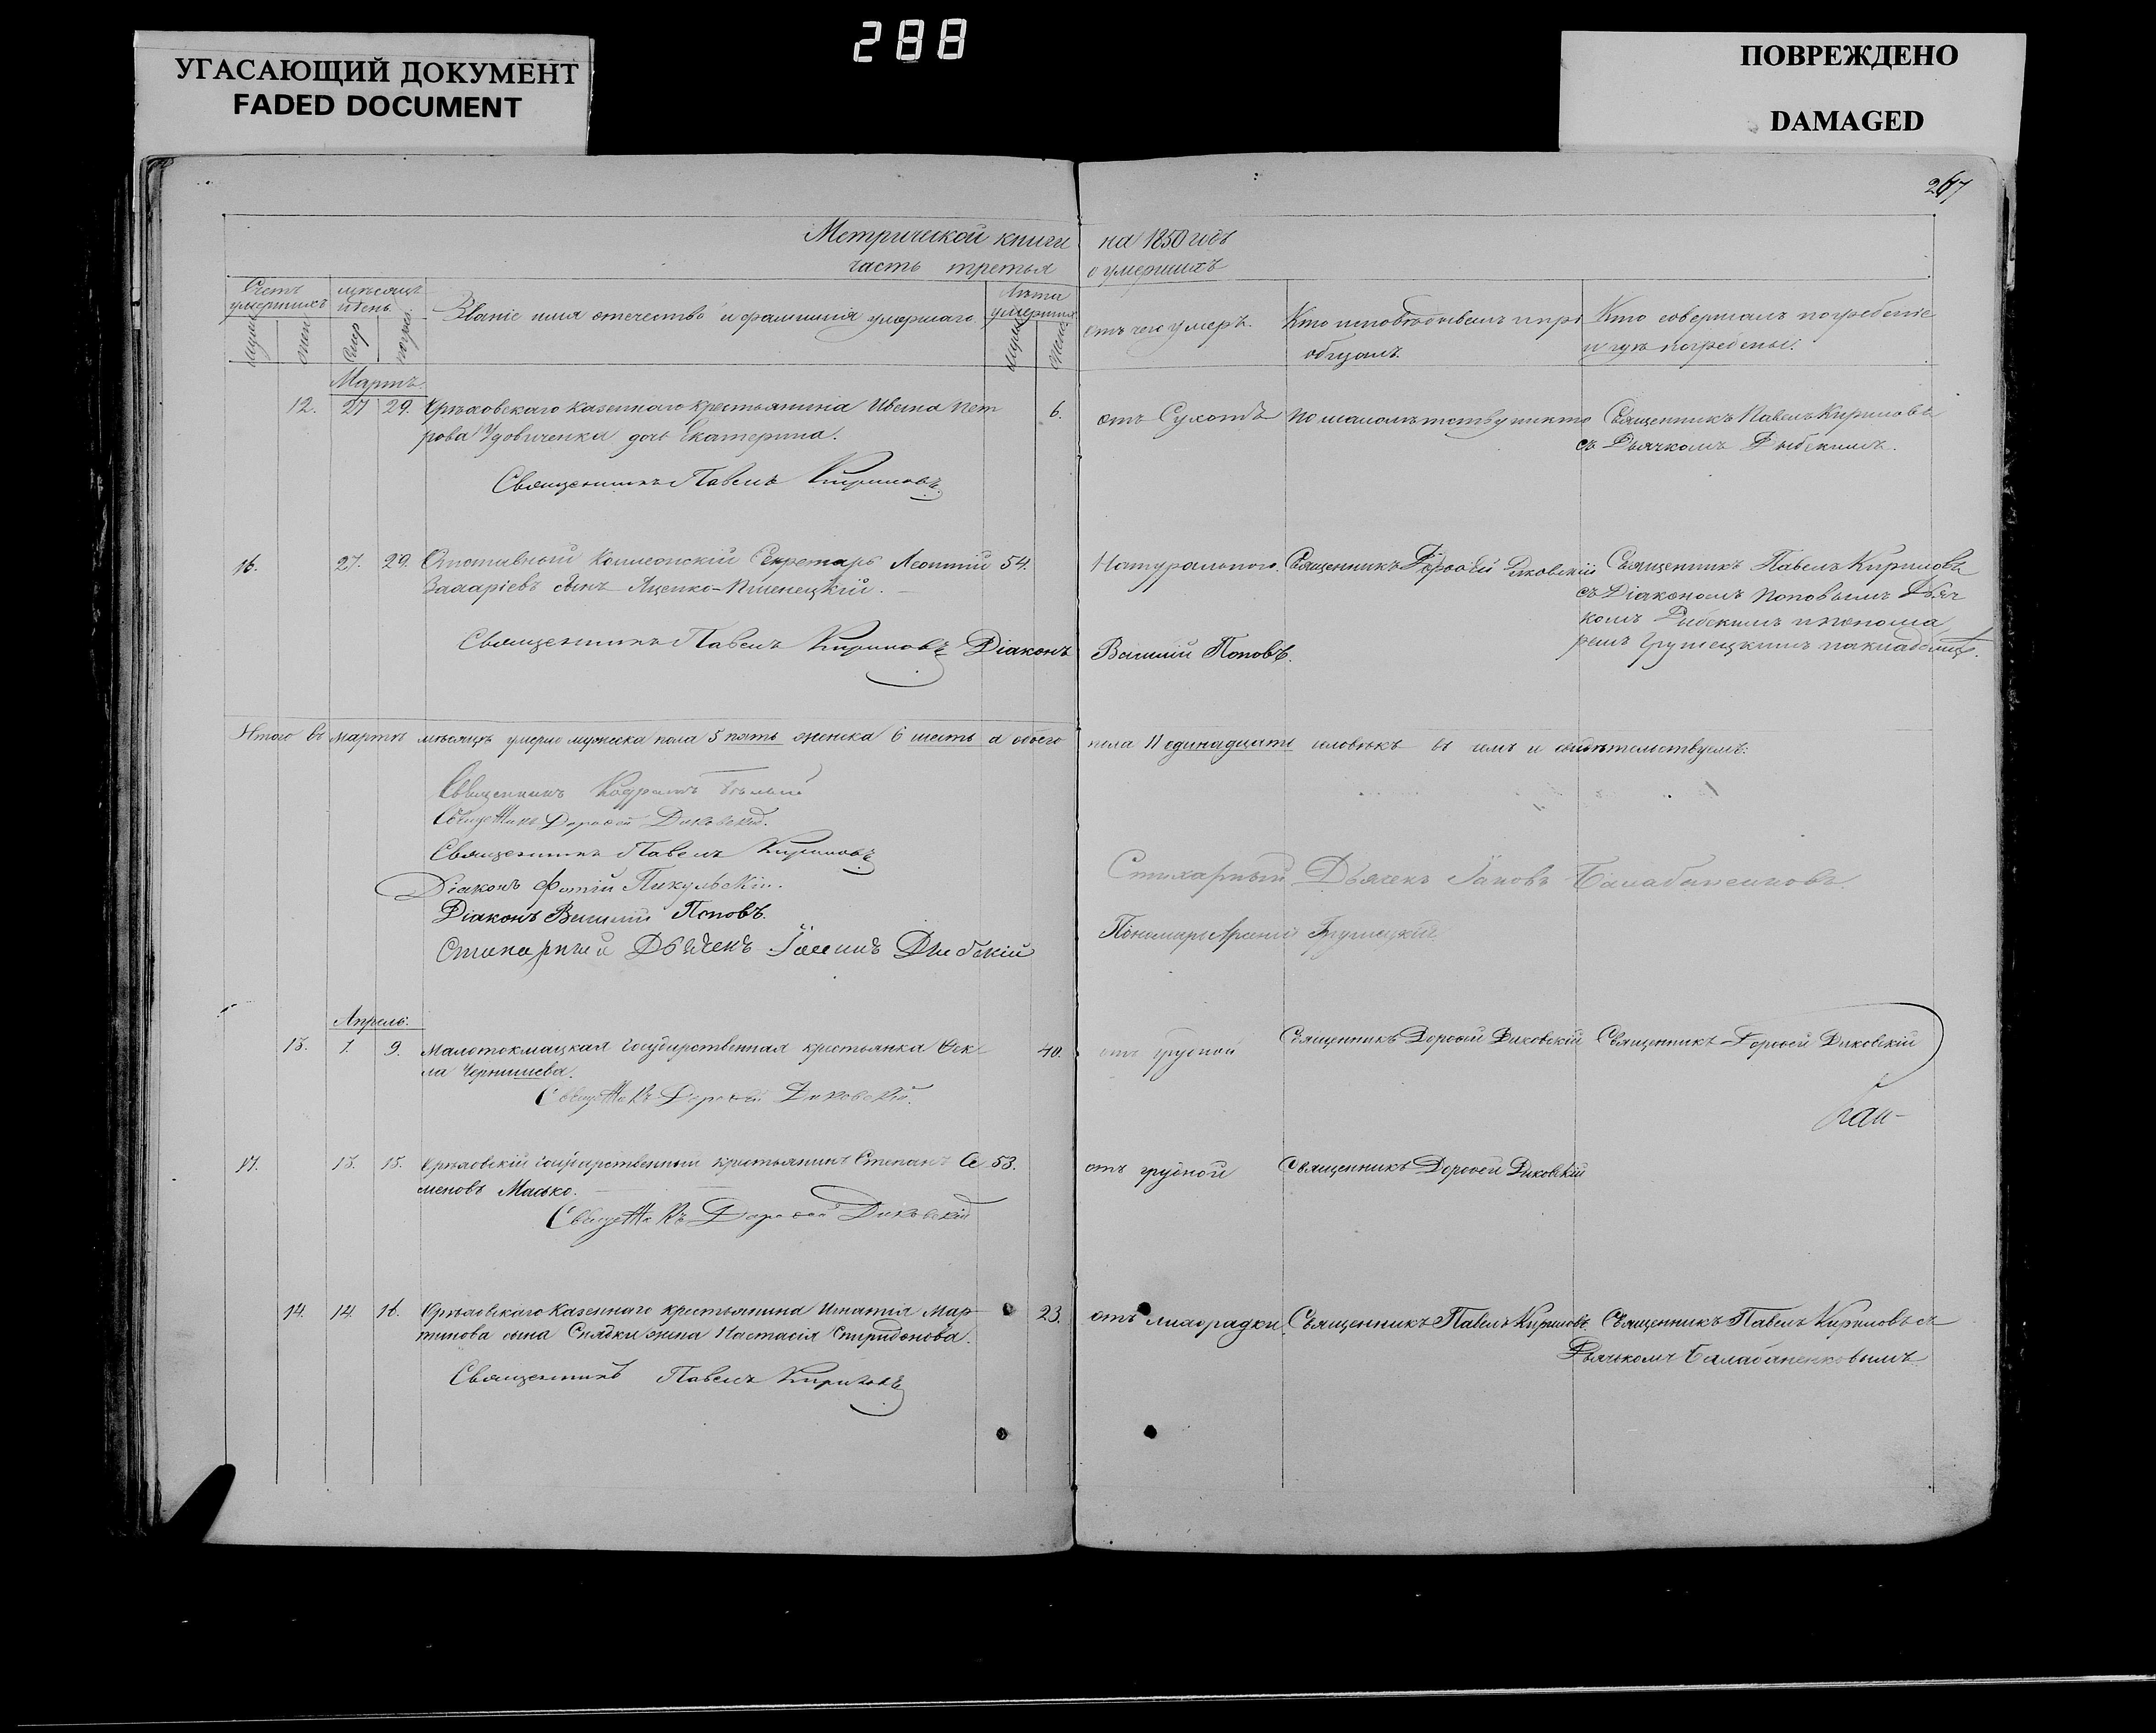 288
УГАСАЮЩИЙ ДОКУМЕНТ
FADED DOCUMENT
ПОВРЕЖДЕНО
DAMAGED
267
Метрической книги на 1850 годъ
часть третья о умершихъ
Счетъ умершихъ
мѣсяцъ и день
Званіе имя отечество и фамилія умершаго
Лѣта умершихъ
отъ чего умеръ.
Кто исповѣдывалъ и пріобщалъ.
Кто совершалъ погребеніе и гдѣ погребены.
Мартъ.
12. 27 29. Орѣховскаго казеннаго крестьянина Ивана Пет 6. отъ Сухотъ по малолѣтству никто Священникъ Павелъ Кириловъ
рова Удовиченка дочь Екатерина. съ Дьячкомъ Дыбскимъ.
Священникъ Павелъ Кириловъ
16. 27. 29. Отставный Коллежскій Секретарь Леонтій 54. Натурально. Священникъ Дорофей Диковскій Священникъ Павелъ Кириловъ
Захаріевъ сынъ Яценко-Пшенецкій. съ Діакономъ Поповымъ Дья
комъ Дибскимъ и понома
ремъ Грушецкимъ на кладбищѣ.
Священникъ Павелъ Кириловъ Діаконъ Василій Поповъ.
Итого въ мартѣ мѣсяцѣ умерло мужеска пола 5 пять женска 6 шесть а обоего пола 11 одинадцать человѣкъ въ чемъ и свидѣтельствуемъ:
Священникъ Кодратъ Бѣлый
Священникъ Дорофей Диковскій.
Священникъ Павелъ Кириловъ
Діаконъ Фотій Пикульскій.
Діаконъ Василій Поповъ.
Стихарный Дьячекъ Дибскій
Стихарный Дьячекъ Іаковъ Балабаненковъ.
Пономарь Грушецкій
Апрель:
13. 1. 9. Малотокмацкая государственная крестьянка Фек 40. отъ грудной Священникъ Дорофей Диковскій Священникъ Дорофей Диковскій
ла Чернишева.
Священникъ Дорофей Диковскій.
17. 13. 15. Орѣховскій государственный крестьянинъ Степанъ Се 53. отъ грудной Священникъ Дорофей Диковскій
меновъ Масько.
Священникъ Дорофей Диковскій
14. 14. 16. Орѣховскаго казеннаго крестьянина Игнатія Мар 23. отъ лихорадки. Священникъ Павелъ Кириловъ. Священникъ Павелъ Кириловъ съ
тинова сына Снядки жена Настасія Спиридонова. Дьячкомъ Балабаненковымъ.
Священникъ Павелъ Кириловъ